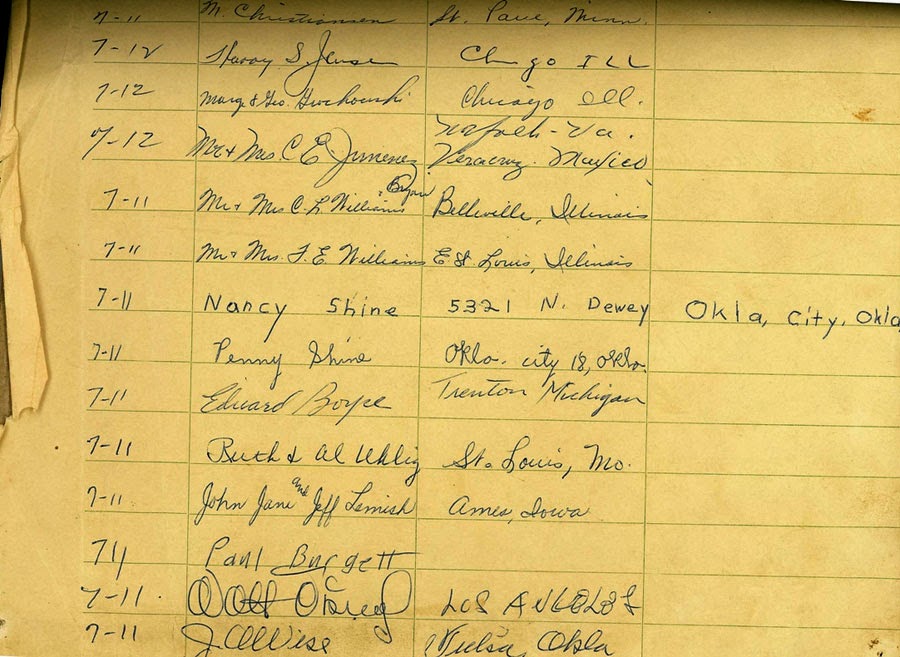 7-11 M. Christiansen St. Paul, Minn.
7-12 Harry S. Jensen Chgo ILL
7-12 Marg & Geo. Chicago Ill.
Norfolk - Va.
7-12 Mr & Mrs C E Jimenez Veracruz. Mexico
& Bryan
7-11 Mr & Mrs C. L Williams Belleville, Illinois
7-11 Mr & Mrs. F. E. Williams E St. Louis, Illinois
7-11 Nancy Shine 5321 N. Dewey Okla, City, Okla
7-11 Penny Shine Okla. city 18, Okla.
7-11 Edward Boyce Trenton Michigan
7-11 Ruth & Al Uhlig St. Louis, Mo.
7-11 John Jane and Jeff Lemish Ames, Iowa
711 Paul Burgett
7-11. Walt LOS ANGELES
7-11 J. A. Wise Tulsa, Okla